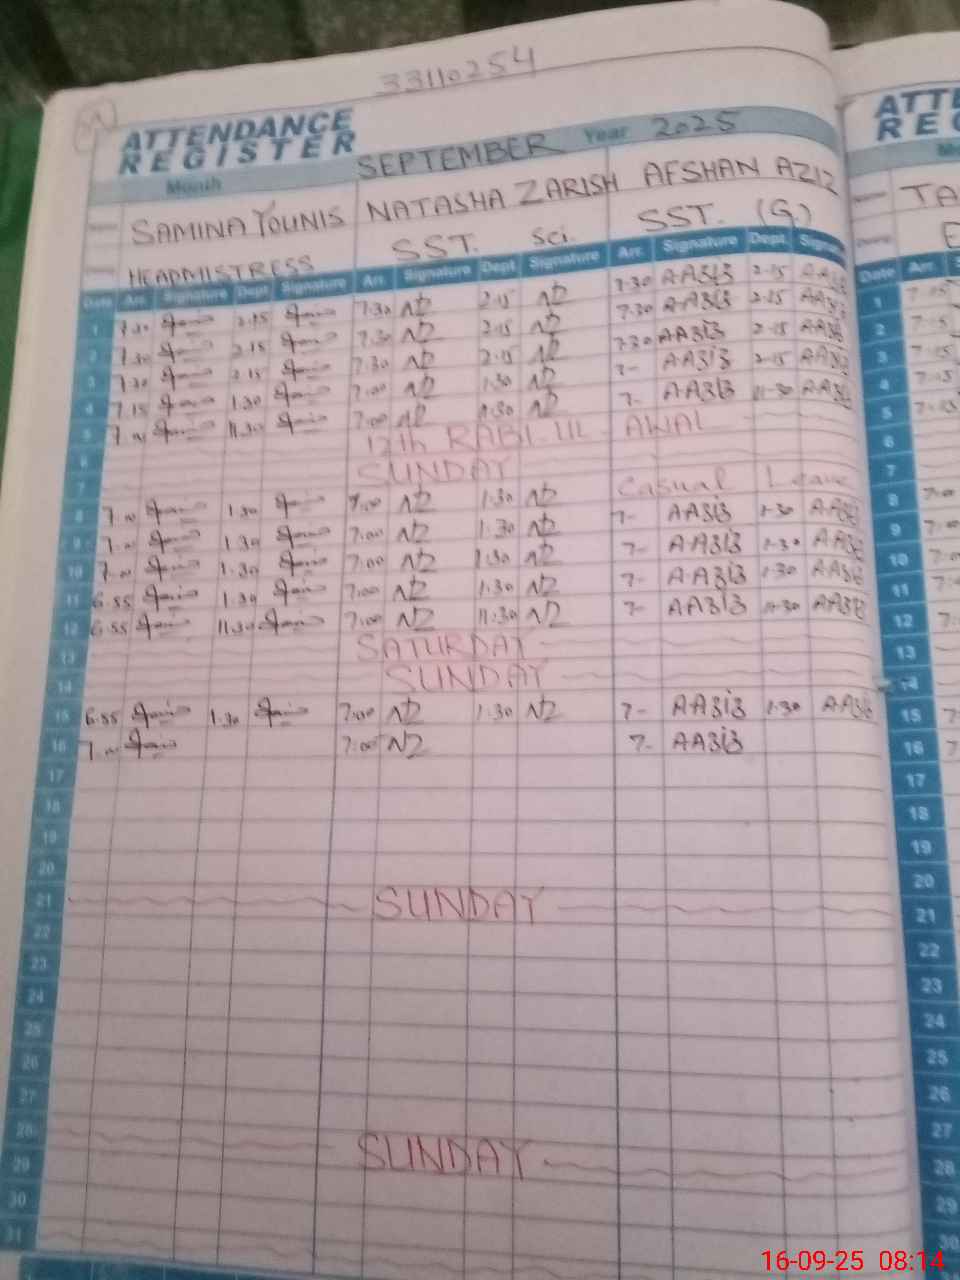 33110254
ATTENDANCE ATTE
REGISTER REG
Month SEPTEMBER Year 2025
Name SAMINA YOUNIS NATASHA ZARISH AFSHAN AZIZ TA
HEADMISTRESS SST. Sci. SST. (G) E
Date Arr. Signature Dept Signature Arr. Signature Dept Signature Arr. Signature Dept. Signatu Date Arr.
1 7.30 2.15 7.30 NZ 2.15 NZ 7.30 AAZiZ 2.15 AAZiZ 1 7.15
2 7.30 2.15 7.30 NZ 2.15 NZ 7.30 AAZiZ 2.15 AAZiZ 2 7.15
3 7.30 2.15 7.30 NZ 2.15 NZ 7.30 AAZiZ 2.15 AAZiZ 3 7.15
4 7.15 1.30 7.00 NZ 1.30 NZ 7- AAZiZ 2.15 AAZiZ 4 7.15
5 7.00 11.30 7.00 NZ 11.30 NZ 7- AAZiZ 11.30 AAZiZ 5
6 12th RABI-UL AWAL 6
7 SUNDAY 7
8 7.00 1.30 7.00 NZ 1.30 NZ Casual Leave 8 7.00
9 7.00 1.30 7.00 NZ 1.30 NZ 7- AAZiZ 1.30 AAZiZ 9 7.00
10 7.00 1.30 7.00 NZ 1.30 NZ 7- AAZiZ 1.30 AAZiZ 10
11 6.55 1.30 7.00 NZ 1.30 NZ 7- AAZiZ 1.30 AAZiZ 11
12 6.55 11.30 7.00 NZ 11.30 NZ 7- AAZiZ 11.30 AAZiZ 12
13 SATURDAY 13
14 SUNDAY 14
15 6.55 1.30 7.00 NZ 1.30 NZ 7- AAZiZ 1.30 AAZiZ 15
16 7.00 7.00 NZ 7- AAZiZ 16
17 17
18 18
19 19
20 20
21 SUNDAY 21
22 22
23 23
24 24
25 25
26 26
27 27
28 SUNDAY 28
29 29
30 30
31
16-09-25 08:14